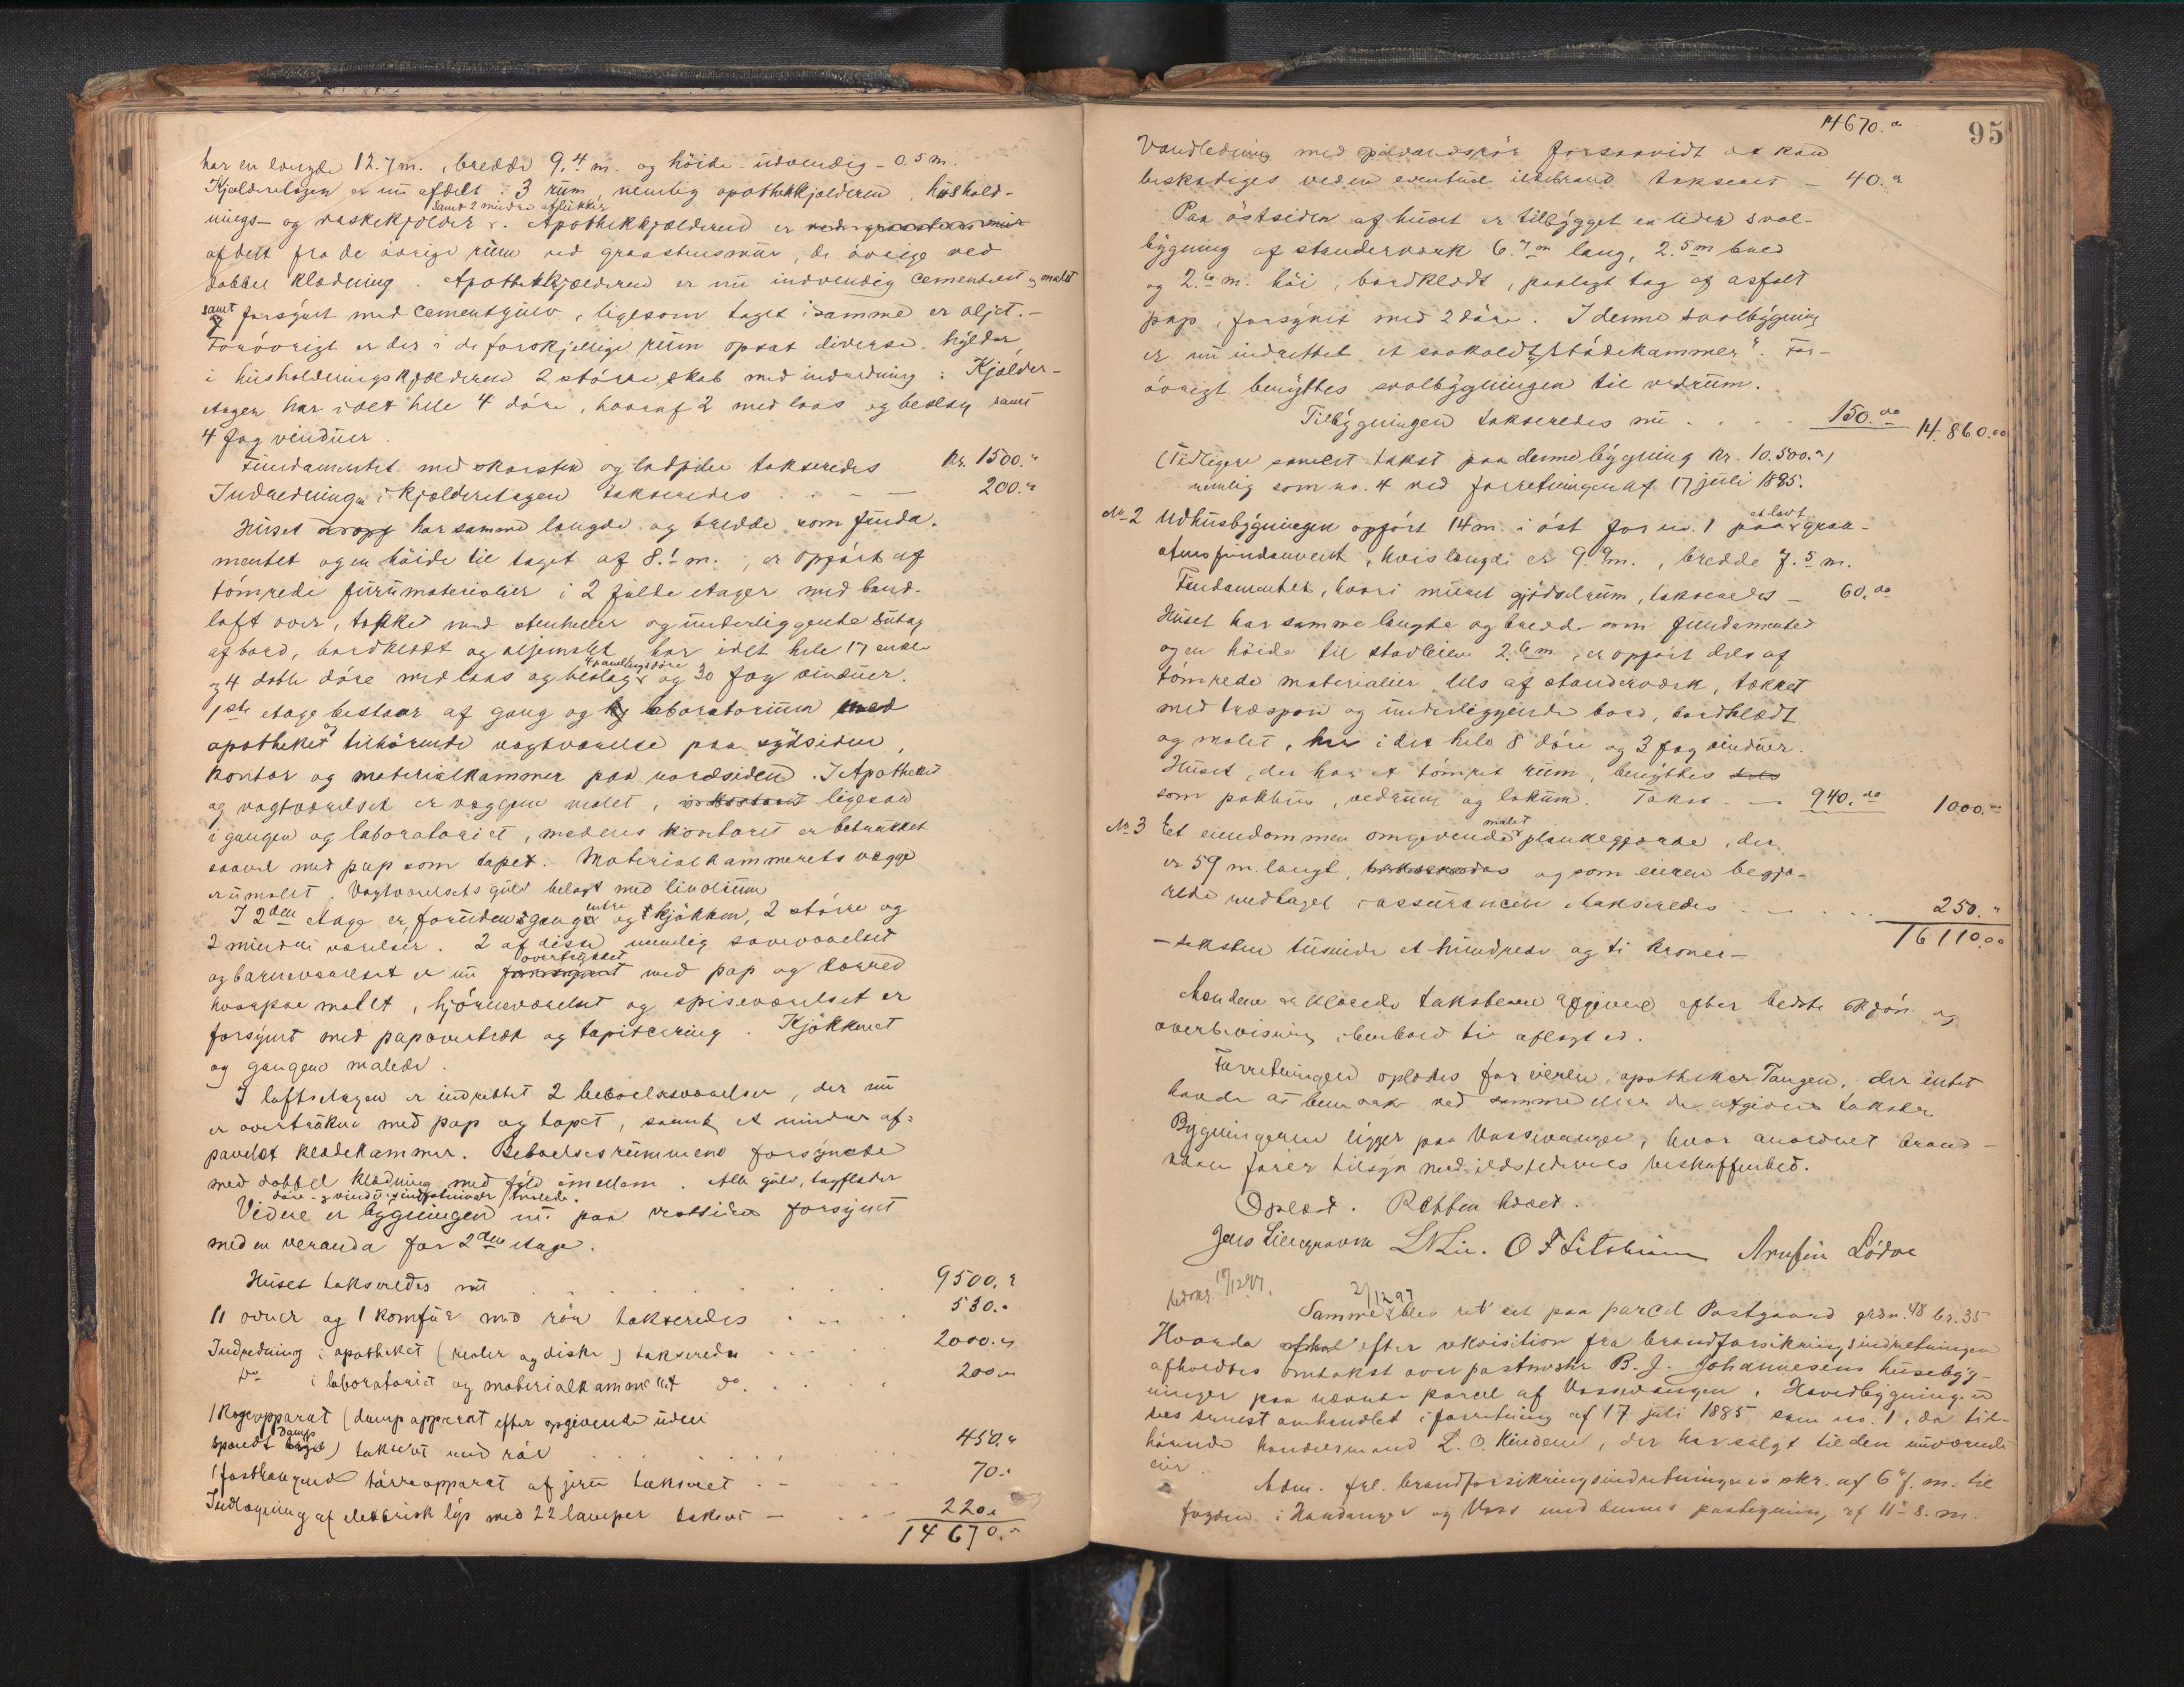 har en længde 12.7 m., bredde 9.4 m. og höide udvendig - 0.5 m.
Kjelderetagen er nu afdelt i 3 rum, nemlig apothekkjelderen, hushold-
samt 2 mindre aflukker
nings- og vaskekjelder. Apothekkjelderen er ved graastensmur
afdelt fra de övrige rum ved graastensmur, de övrige ved
dobbel klædning. Apothekkjelderen er nu indvendig cementeret og malet
samt forsynet med cementgulv, ligesom taget i samme er oljet. -
Forövrigt er der i de forskjellige rum opsat diverse hylder,
i husholdningskjelderen 2 större skab med indredning. Kjelder-
etagen har i det hele 4 döre, hvoraf 2 med laas og beslag samt
4 fag vinduer.
Fundamentet med skorsten og ladpiber takseredes Kr. 1500."
Indredningen i kjelderetagen takseredes . . - - 200."
Huset har samme længde og bredde som funda-
mentet og en höide til taget af 8.1 m., er opfört af
tömrede furumaterialier i 2 fulde etager med band-
loft over, tækket med stenheller og underliggende sutag
af bord, bordklædt og oljemalet, har i det hele 17 enkle
4 panelingsdöre
og 4 doble döre med laas og beslag og 30 fag vinduer.
1ste etage bestaar af gang og laboratorium med
apotheket og tilhörende vagtværelse paa sydsiden,
kontor og materialkammer paa nordsiden. I Apotheket
og vagtværelset er væggene malet, ligesaa
i gangen og laboratoriet, medens kontoret er betrukket
saavel med pap som tapet. Materialkammerets vægge
er umalet. Vagtværelsets gulv belagt med linolium
entre
I 2den etage er, foruden gange og kjökken, 2 större og
2 mindre værelser. 2 af disse nemlig soveværelset
overtrukket
og barneværelset er nu forsynet med pap og lærred
hvorpaa malet, hjörneværelset og spiseværelset er
forsynet med papovertræk og tapitsering. Kjökkenet
og gangene malede.
I loftsetagen er indrettet 2 beboelsesværelser, der nu
er overtrukne med pap og tapet, samt et mindre af-
panelet klædekammer. Beboelsesrummene forsynede
med dobbel klædning med fyld imellem. Alle gulv, tagflader
döre- og vindusindfatninger malede.
Videre er bygningen nu paa vestsiden forsynet
med en veranda for 2den etage.
Huset takseredes nu . . . . . . 9500."
11 ovner og 1 komfur med rör takseredes . . . . 530."
Indredning i apotheket (reoler og diske) takseredes . . . . 2000."
Do i laboratoriet og materialkammeret do . . . . 200."
1 kogeapparat (dampapparat efter opgivende uden
damp
spændt ) takseret med rör . . . . . . 450."
1 fasthængende törreapparat af jern takseret . . - . . 70."
Indlægning af elektrisk lys med 22 lamper takseret - . . - 220."
14670."
95
14670."
Vandledning med galvaniserör forsaavidt det kan
beskadiges ved en eventuel ildebrand takseret - 40."
Paa östsiden af huset er tilbygget en liden sval-
bygning af standerværk 6.7 m lang, 2.5 m bred
og 2.6 m. höi, bordklædt, paalagt tag af asfalt
pap, forsynet med 2 döre. I denne svalbygning
er nu indrettet et saakaldt "Stödekammer". For-
övrigt benyttes svalbygningen til vedrum.
Tilbygningen takseredes nu . . . . 150.00 14.860.00
(Tidligere samlet takst paa denne bygning Kr. 10.500.")
nemlig som no. 4 ved forretningen af 17 juli 1885.
et lavt
No. 2 Udhusbygningen opfört 14 m. i öst for no. 1 paa graa-
stensfundament, hvis længde er 9.9 m., bredde 7.5 m.
Fundamentet, hvori muret gjödselrum, takseredes - 60.00
Huset har samme længde og bredde som fundamentet
og en höide til stavleien 2.6 m, er opfört dels af
tömrede materialier dels af standerværk, tækket
med træspon og underliggende bord, bordklædt
og malet, har i det hele 8 döre og 3 fag vinduer.
Huset, der har et tömret rum, benyttes
som pakhus, vedrum og lokum. Takst . - 940.00 1000."
malet
No. 3 Et eiendommen omgivende plankegjærde, der
er 59 m. langt, takseredes og som eieren begjæ-
rede medtaget i assurancen takseredes - . . . 250."
16110.00
- seksten tusinde et hundrede og ti kroner -
Mændene erklærede taksterne afgivne efter bedste skjön og
overbevisning i henhold til aflagt ed.
Forretningen oplæstes for eieren, apotheker Tangen, der intet
havde at bemærke ved samme eller de afgivne takster
Bygningerne ligger paa Vossevangen, hvor anordnet brand-
væsen förer tilsyn med ildstedernes beskaffenhed.
Oplæst. Retten hævet.
Jens Lilleg L N Lie. O F Arnfin Lödve
18/12 97. 2/12 97
Samme blev ret sat paa parcel Postgaard grdn. 48 br. 35
Hvorda efter rekvisition fra brandforsikringsindretningen
afholdtes omtakst over postmester B. J. Johannesens husebyg-
ninger paa nævnte parcel af Vossevangen. Hovedbygningen
sees senest omhandlet i forretning af 17 juli 1885 som no. 1, da til-
hörende handelsmand L. O. Kindem, der har solgt til den nuværende
eier.
Adm. frl. brandforsikringsindretningens skr. af 6 f. m. til
fogden i Hardanger og Voss med dennes paategning af 11 s. m.